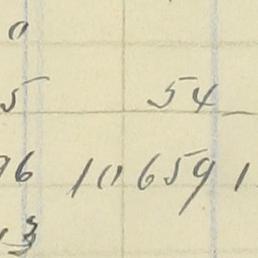 0
5 54
96 10659 1
3